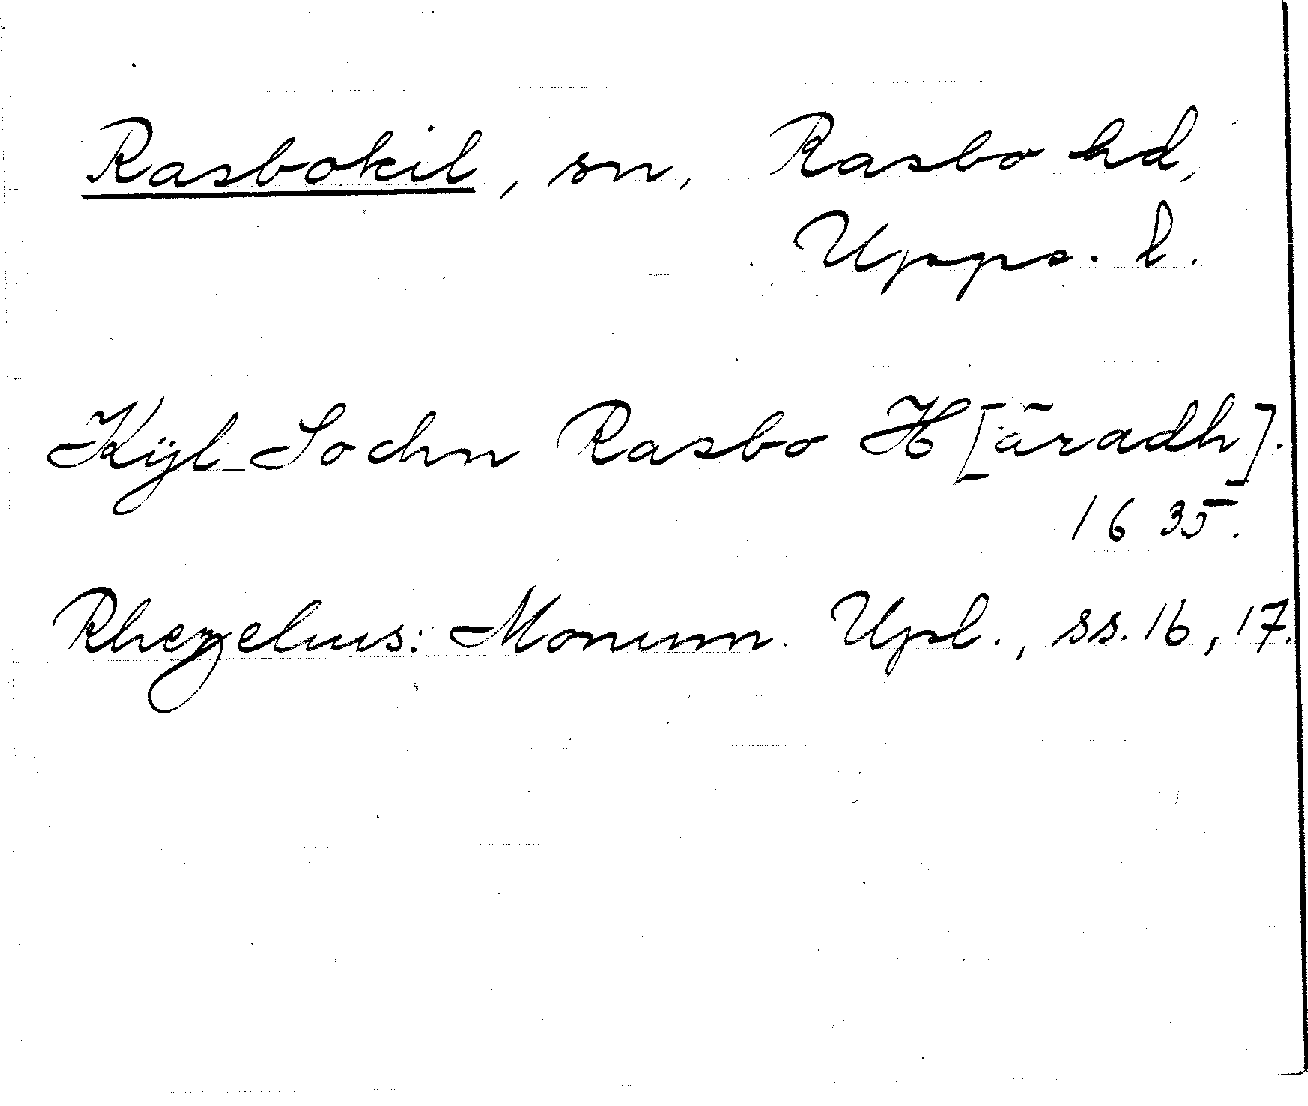 Rasbokil, sn, Rasbo hd,
Upps. l.
Kÿl Sochn Rasbo H[äradh].
1635.
Rhezelius: Monum. Upl., ss. 16, 17.